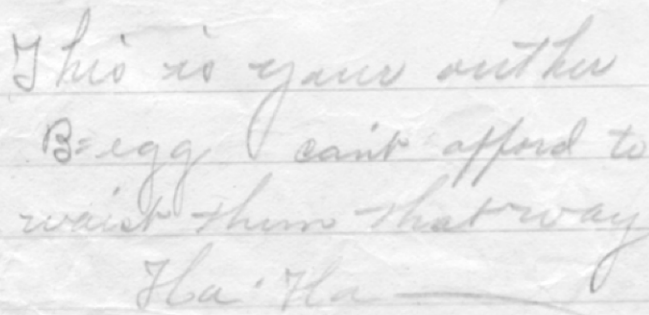 This is your outher
B=egg I can't afford to
waist them that way
Ha. Ha